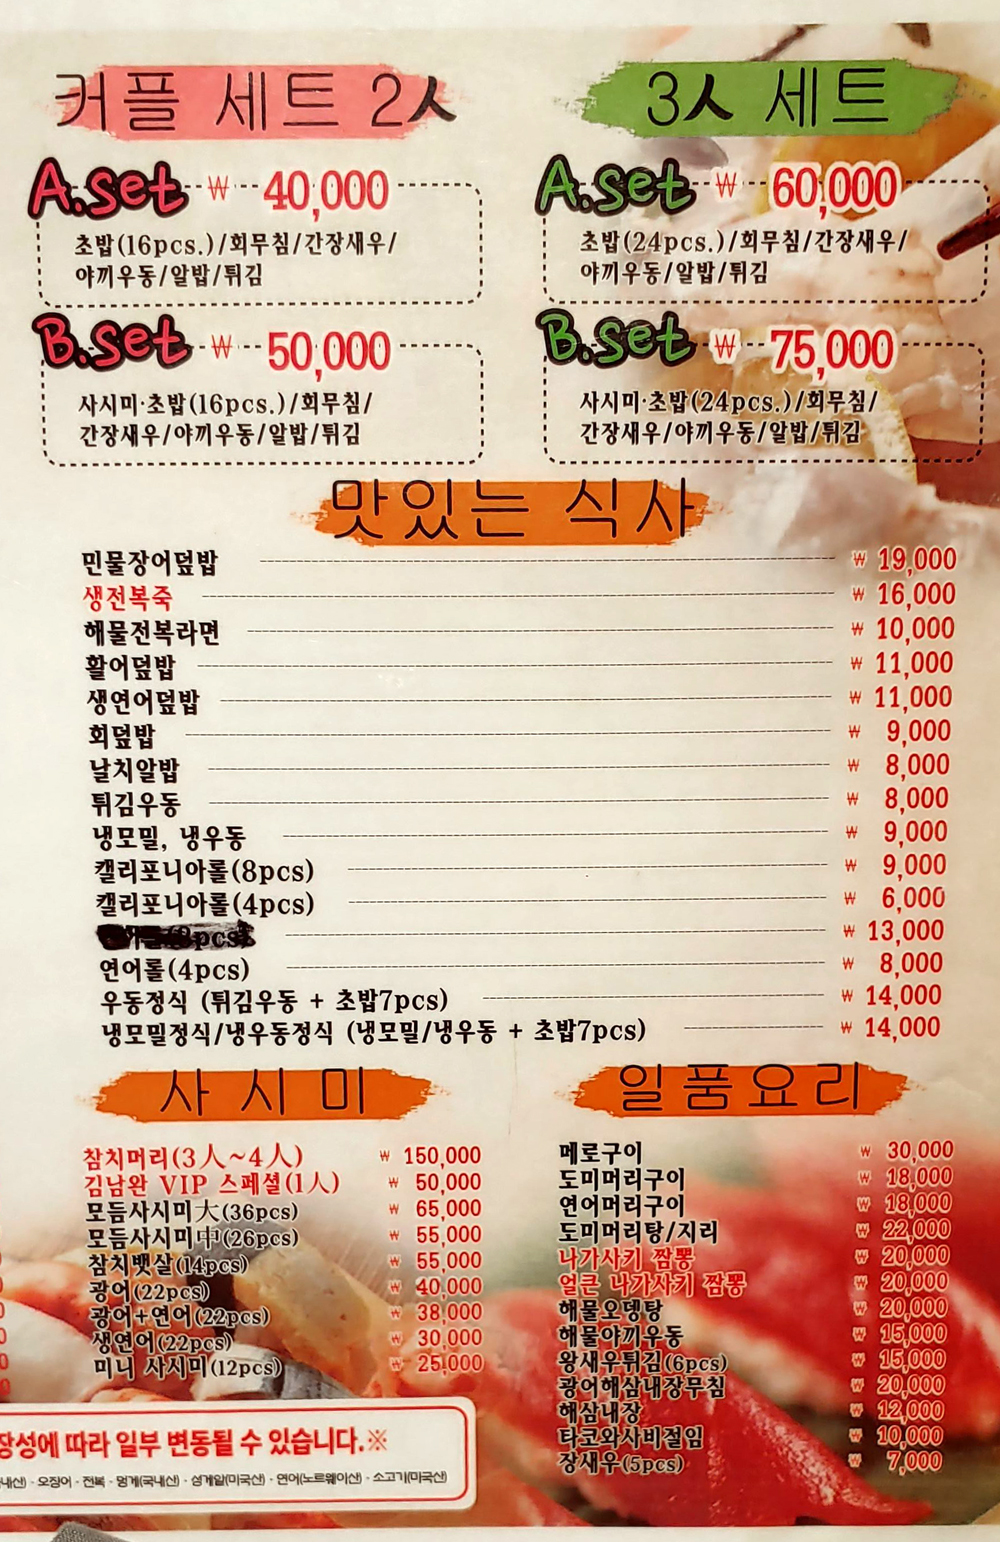 커플 세트 2人
A.set ₩ 40,000
초밥(16pcs.)/회무침/간장새우/
야끼우동/알밥/튀김
B.set ₩ 50,000
사시미·초밥(16pcs.)/회무침/
간장새우/야끼우동/알밥/튀김
3人 세트
A.set ₩ 60,000
초밥(24pcs.)/회무침/간장새우/
야끼우동/알밥/튀김
B.set ₩ 75,000
사시미·초밥(24pcs.)/회무침/
간장새우/야끼우동/알밥/튀김
맛있는 식사
민물장어덮밥 ₩ 19,000
생전복죽 ₩ 16,000
해물전복라면 ₩ 10,000
활어덮밥 ₩ 11,000
생연어덮밥 ₩ 11,000
회덮밥 ₩ 9,000
날치알밥 ₩ 8,000
튀김우동 ₩ 8,000
냉모밀, 냉우동 ₩ 9,000
캘리포니아롤(8pcs) ₩ 9,000
캘리포니아롤(4pcs) ₩ 6,000
₩ 13,000
연어롤(4pcs) ₩ 8,000
우동정식 (튀김우동 + 초밥7pcs) ₩ 14,000
냉모밀정식/냉우동정식 (냉모밀/냉우동 + 초밥7pcs) ₩ 14,000
사시미
참치머리(3人~4人) ₩ 150,000
김남완 VIP 스페셜(1人) ₩ 50,000
모듬사시미大(36pcs) ₩ 65,000
모듬사시미中(26pcs) ₩ 55,000
참치뱃살(14pcs) ₩ 55,000
광어(22pcs) ₩ 40,000
광어+연어(22pcs) ₩ 38,000
생연어(22pcs) ₩ 30,000
미니 사시미(12pcs) ₩ 25,000
일품요리
메로구이 ₩ 30,000
도미머리구이 ₩ 18,000
연어머리구이 ₩ 18,000
도미머리탕/지리 ₩ 22,000
나가사키 짬뽕 ₩ 20,000
얼큰 나가사키 짬뽕 ₩ 20,000
해물오뎅탕 ₩ 20,000
해물야끼우동 ₩ 15,000
왕새우튀김(6pcs) ₩ 15,000
광어해삼내장무침 ₩ 20,000
해삼내장 ₩ 12,000
타코와사비절임 ₩ 10,000
장새우(5pcs) ₩ 7,000
장성에 따라 일부 변동될 수 있습니다.※
내산) · 오징어 · 전복 · 멍게(국내산) · 성게알(미국산) · 연어(노르웨이산) · 소고기(미국산)